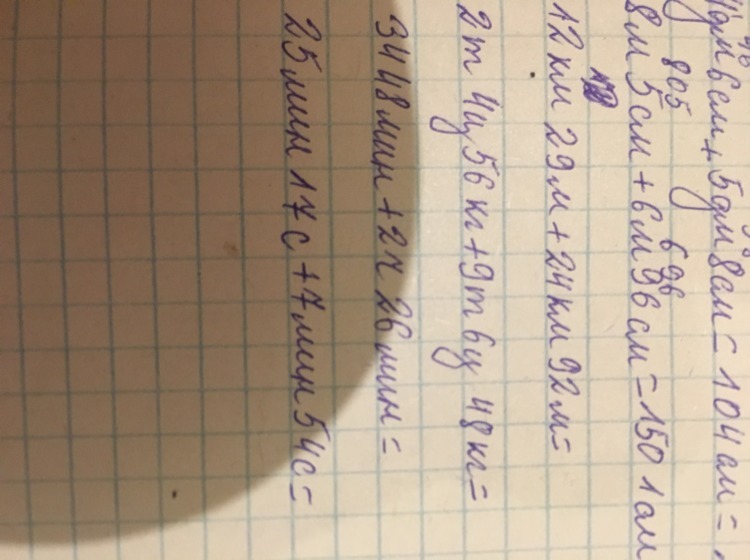 6см + 5дм 8см = 104см =
805 696
8м 5см + 6м 96см = 1501см
12км 29м + 24км 92м =
2т 4ц 56кг + 9т 6ц 48кг =
3ч 48мин + 2ч 26мин =
25мин 17с + 7мин 54с =